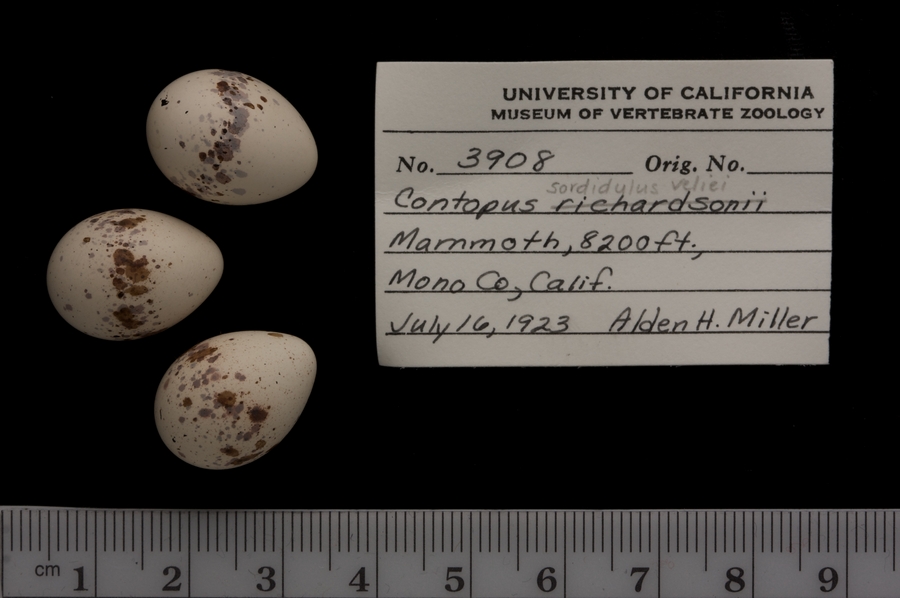 UNIVERSITY OF CALIFORNIA
MUSEUM OF VERTEBRATE ZOOLOGY
No. 3908 Orig. No.
sordidulus veliei
Contopus richardsonii
Mammoth, 8200ft.,
Mono Co, Calif.
July 16, 1923 Alden H. Miller
cm 1 2 3 4 5 6 7 8 9